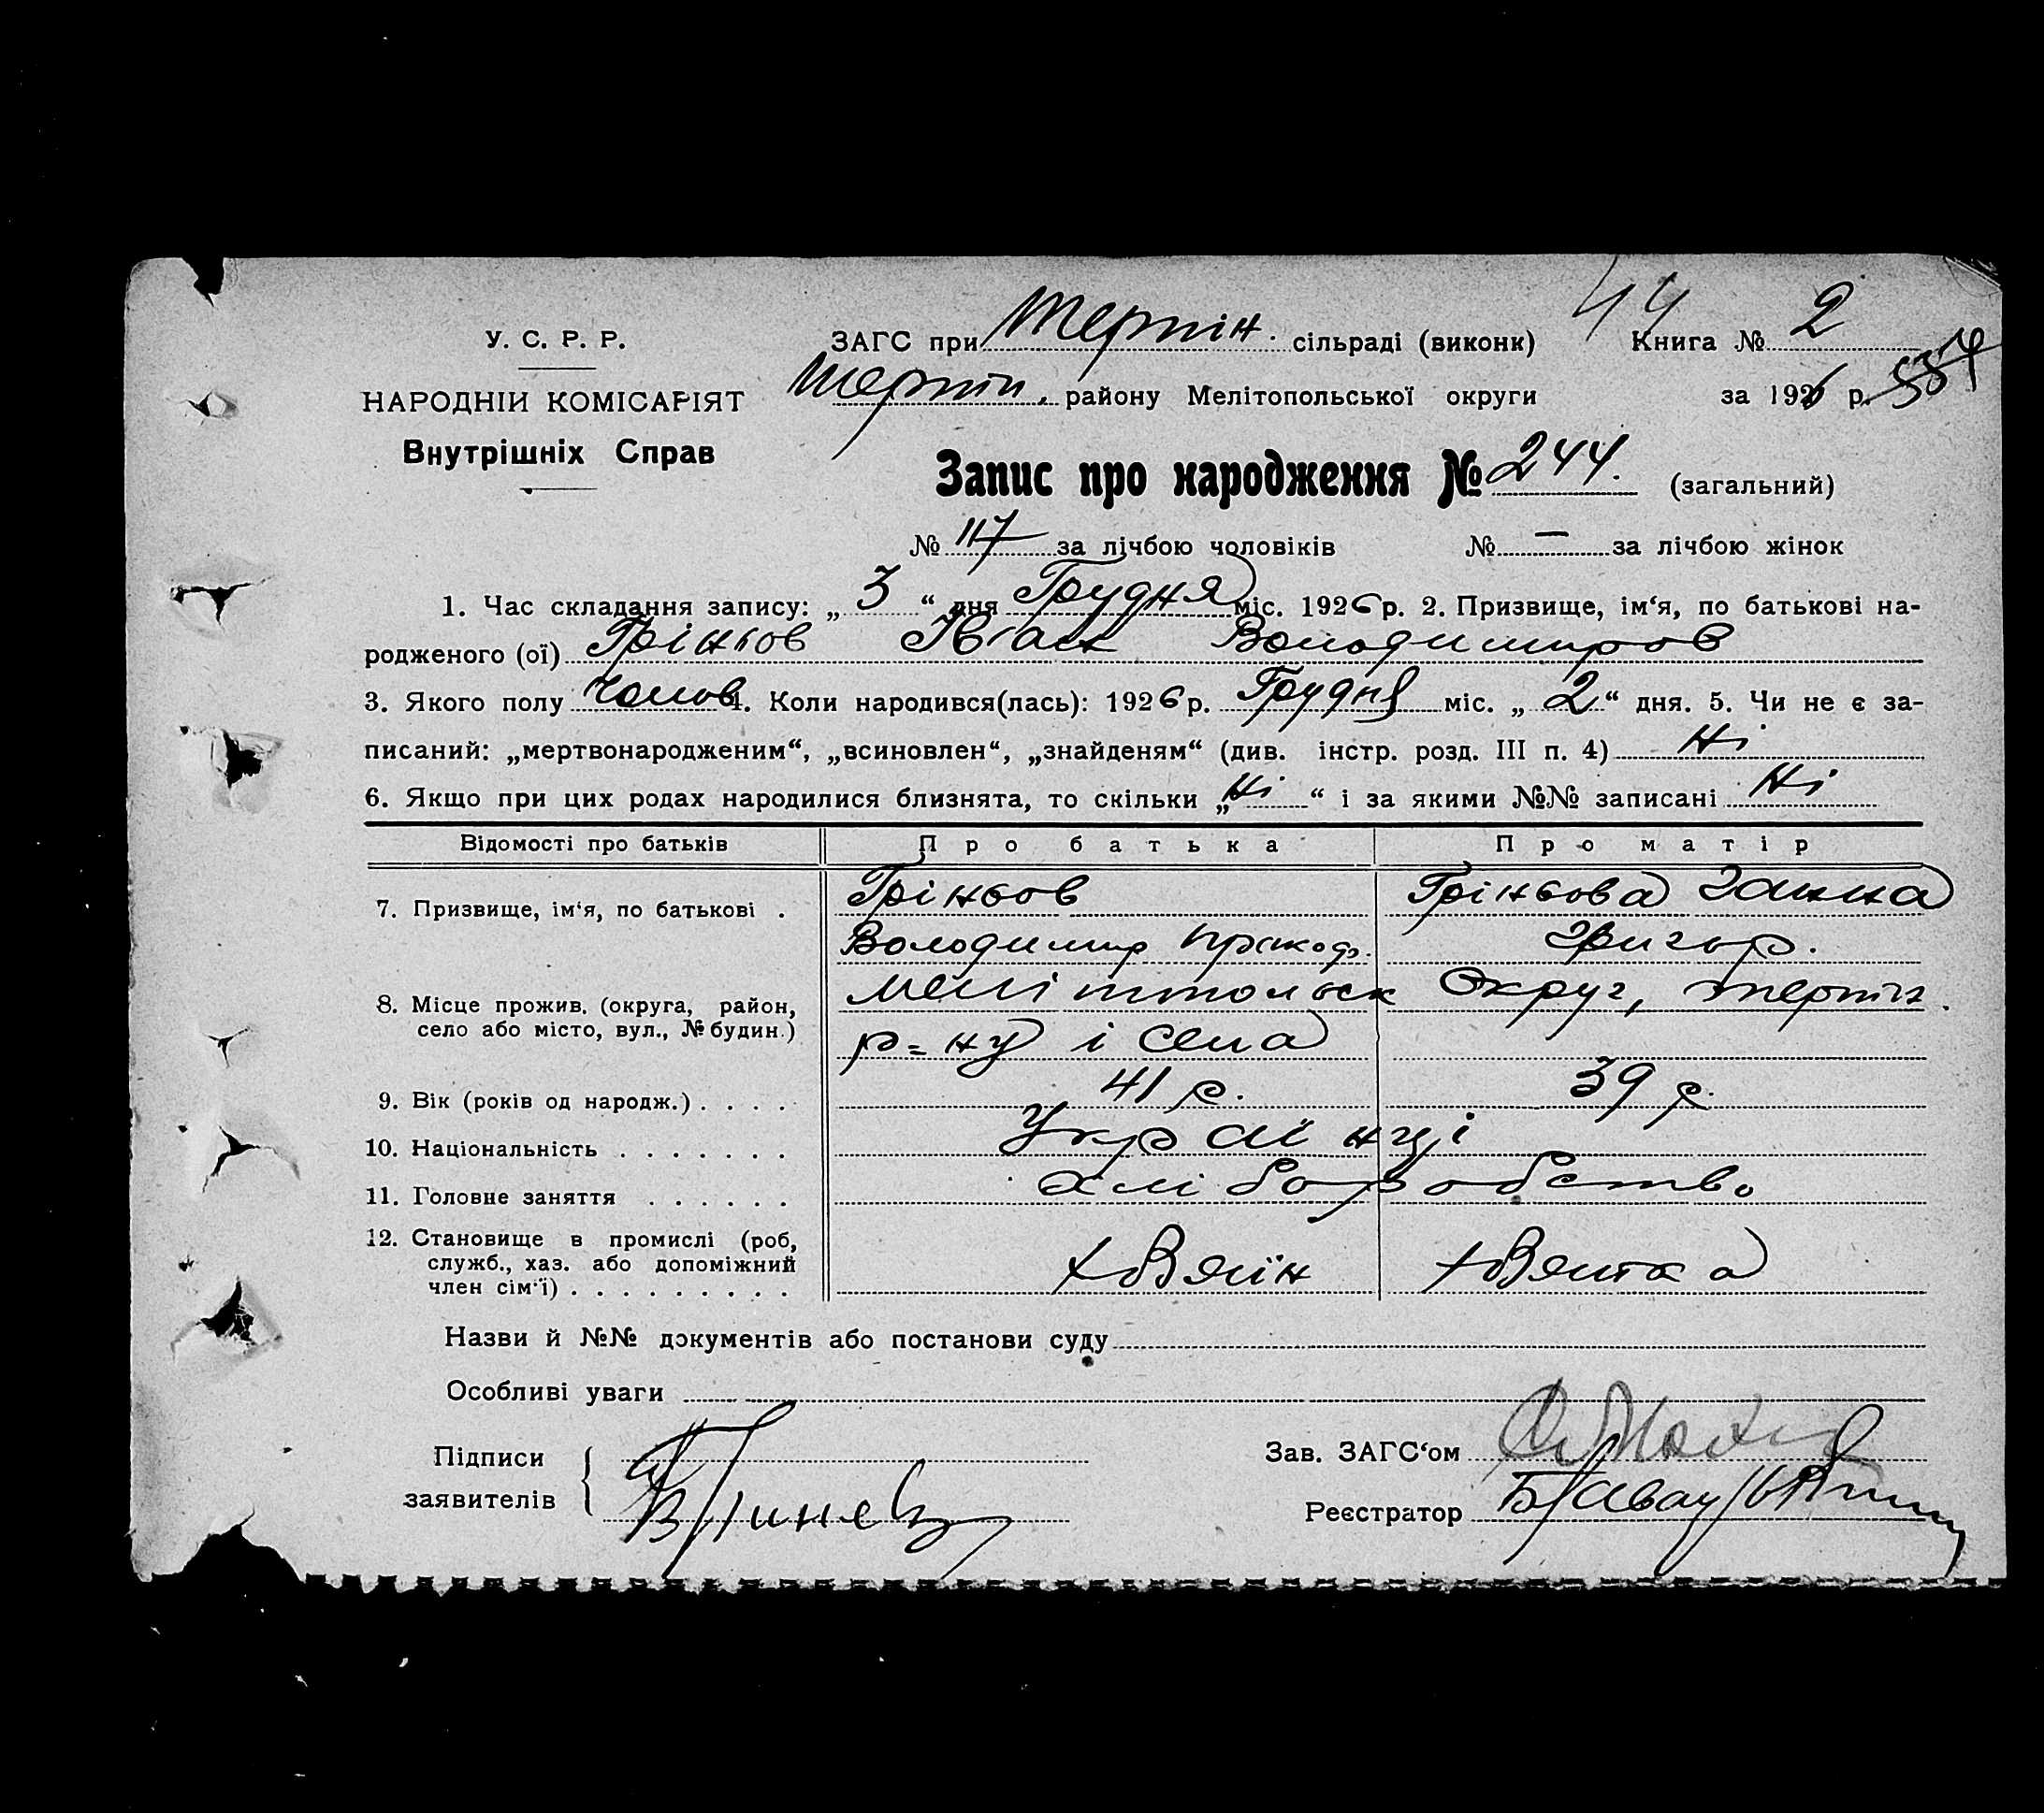 44
У. С. Р. Р.
ЗАГС при Терпін. сільраді (виконк)
Книга № 2
НАРОДНІЙ КОМІСАРІЯТ
Терпін. району Мелітопольської округи
за 1926 р.
Внутрішніх Справ
Запис про народження № 244. (загальний)
№ 117 за лічбою чоловіків № — за лічбою жінок
1. Час складання запису: „ 3 “ дня Грудня міс. 1926 р. 2. Призвище, ім‘я, по батькові на-
родженого (ої) Гріньов Іван Володимиров
3. Якого полу Чолов 4. Коли народився(лась): 1926 р. Грудня міс. „ 2 “ дня. 5. Чи не є за-
писаний: „мертвонародженим“, „всиновлен“, „знайденям“ (див. інстр. розд. III п. 4) Ні
6. Якщо при цих родах народилися близнята, то скільки „ Ні “ і за якими №№ записані Ні
Відомості про батьків
Про батька
Про матір
7. Призвище, ім‘я, по батькові .
Гріньов
Гріньова Ганна
Володимир Прокоф.
Григор.
8. Місце прожив. (округа, район,
село або місто, вул., № будин.)
Мелітопольськ Округ, Терпін.
р=ну і села
9. Вік (років од народж.) . . . .
41 р.
39 р.
10. Національність . . . . . . .
Українці
11. Головне заняття . . . . . .
Хліборобство
12. Становище в промислі (роб,
служб., хаз. або допоміжний
член сім‘ї) . . . . . . . . .
Хозяїн
Хозяйка
Назви й №№ документів або постанови суду
Особливі уваги
Підписи
заявителів
Зав. ЗАГС‘ом
Реєстратор